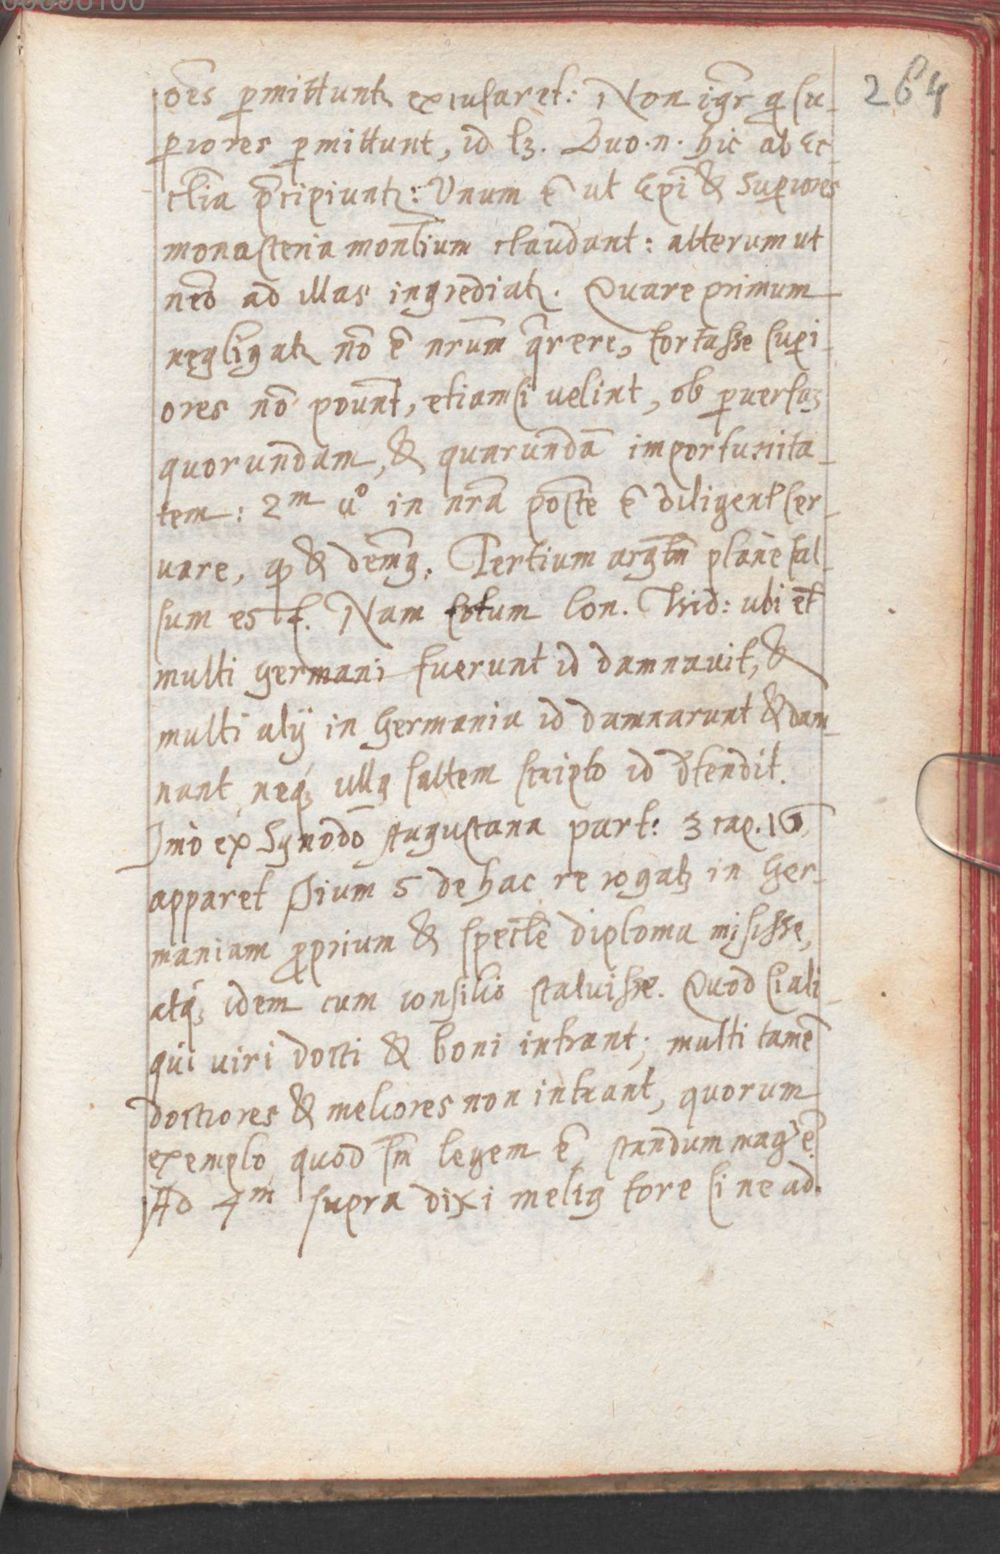 264
oe͂s ꝑmittunt᷒ excusaret: Non igr̃ q̃ su-
ꝑiores ꝑmittunt, id lʒ. Duo .n. hic ab Ec-
clīa p̃cipiunt᷒: Vnum ẽ ut Epĩ & Suꝑiores
monasteria monĩlium claudant: alterum ut
nẽo ad illas ingrediat᷒. Quare primum
negligat᷒ nõ ẽ nr̃um q̃rere, fortasse suꝑi-
ores nõ poũnt, etiam si uelint, ob ꝑuersaʒ
quorundam, & quarundã importunita-
tem: 2ᵐ ũº in nr̃a põte ẽ diligent᷒ ser-
uare, qd̃ & dem̃ꝯ. Tertium argt̃m planè fal-
sum est. Nam totum Con. Trid: ubi et̃
multi germani fuerunt id damnauit, &
multi alÿ in Germania id damnarunt & dam-
nant neqʒ ullꝯ saltem scripto id dẽfendit.
Imò ex Synodo Augustana part: 3 cap. 16
apparet Pium 5 de hac re rogatꝯ in Ger-
maniam ꝓprium & spec̃le diploma misisse,
atqʒ idem cum consilio statuisse. Quod si ali-
qui uiri docti & boni intrant; multi tamẽ
doctiores & meliores non intrant, quorum
exemplo quod s̃m legem ẽ, standum mag᾿ ẽ.
Ad 4ᵐ supra dixi meliꝯ fore si ne ad.